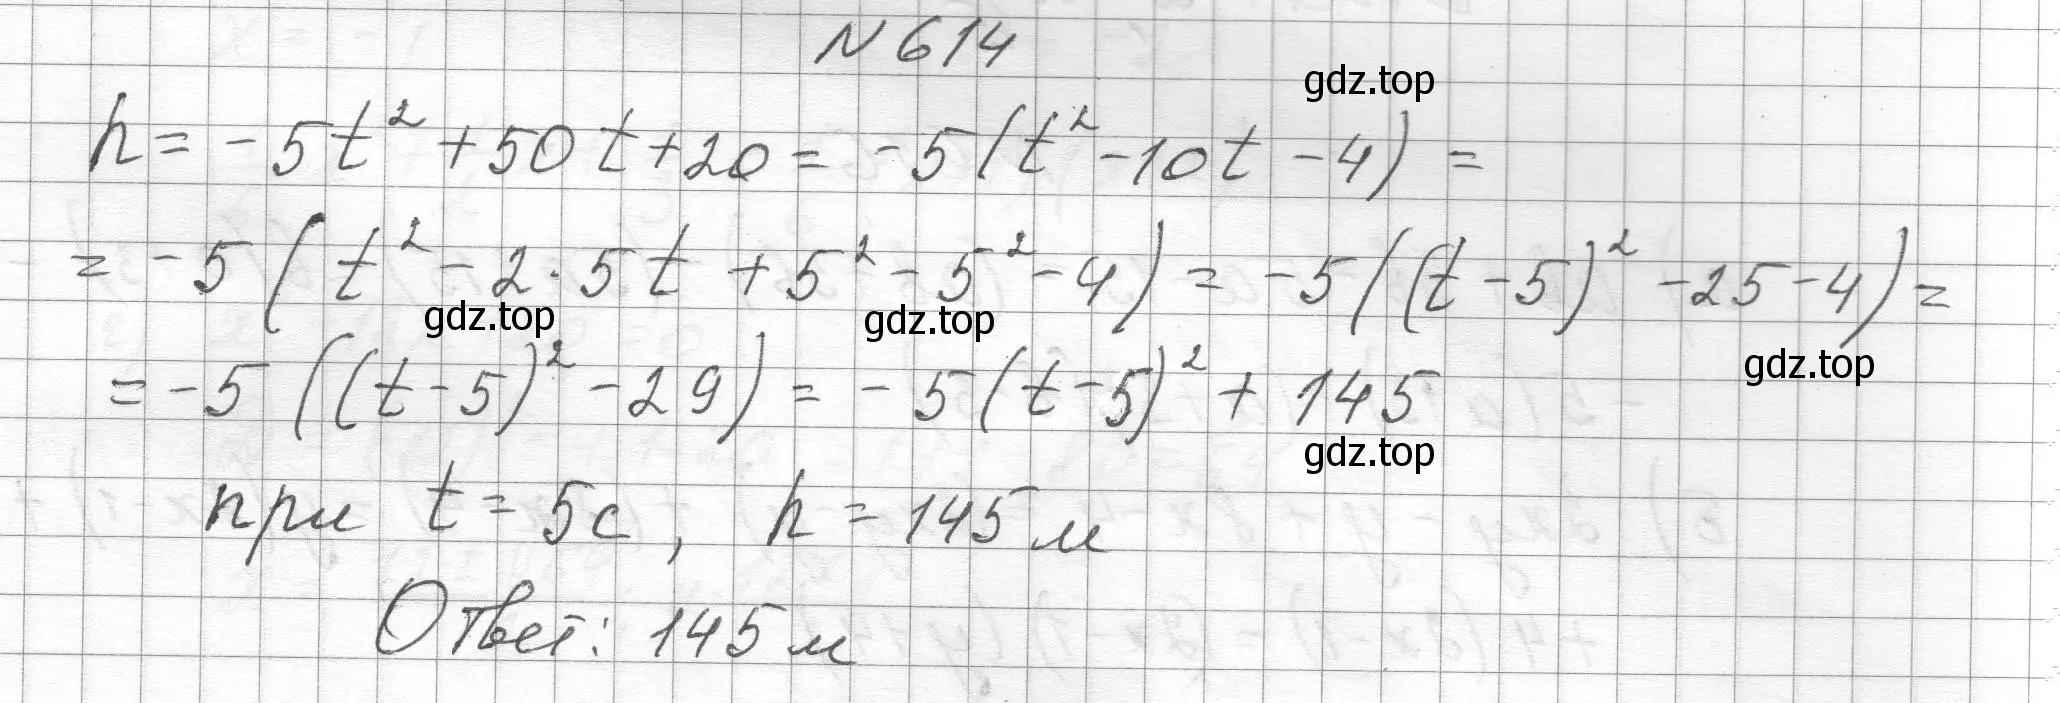 N 614
gdz.top
h = -5t² + 50t + 20 = -5(t² - 10t - 4) =
= -5(t² - 2·5t + 5² - 5² - 4) = -5((t-5)² - 25 - 4) =
gdz.top gdz.top gdz.top
= -5((t-5)² - 29) = -5(t-5)² + 145
gdz.top
при t = 5с, h = 145 м
Ответ: 145 м